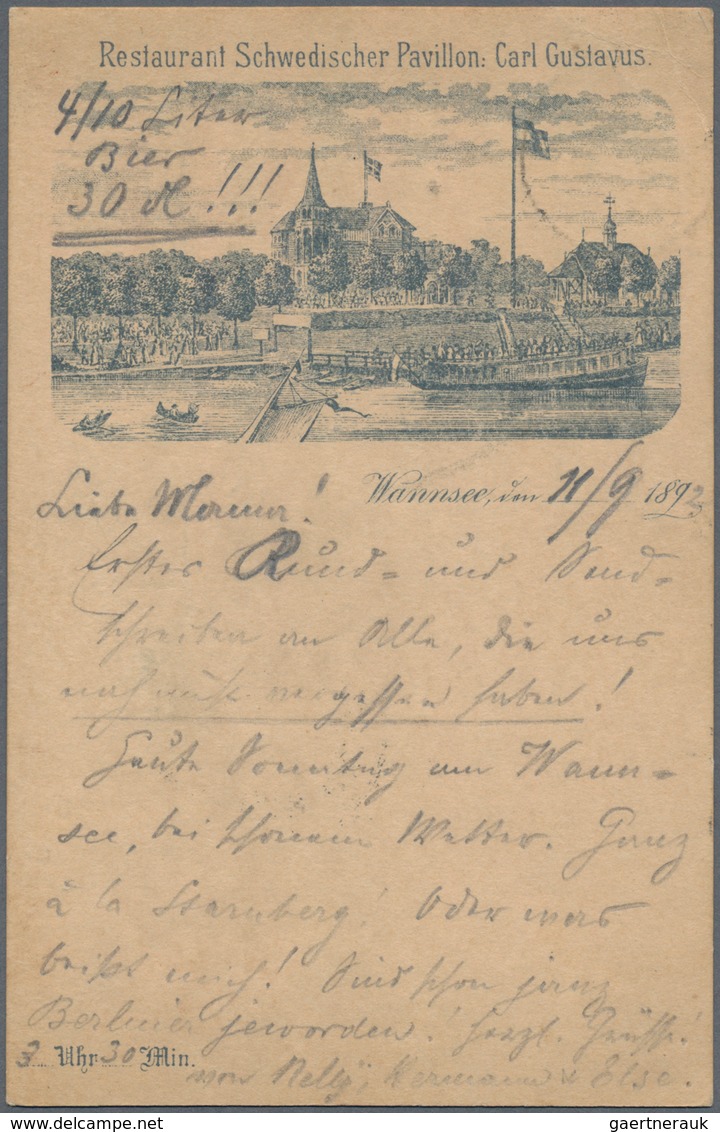 Restaurant Schwedischer Pavillon: Carl Gustavus.
4/10 Liter
Bier
30 ₰!!!
Wannsee, den 11/9 1892
Liebe Mama!
Erstes Rund- und Send-
schreiben an Alle, die uns
noch nicht vergessen haben!
Heute Sonntag am Wann-
see, bei schönem Wetter. Ganz
à la Starnberg! Oder was
beißt mich! Sind schon ganz
Berliner geworden! Herzl. Grüße!
3 Uhr 30 Min.
von Nelly, Hermann & Else.
gaertnerauk